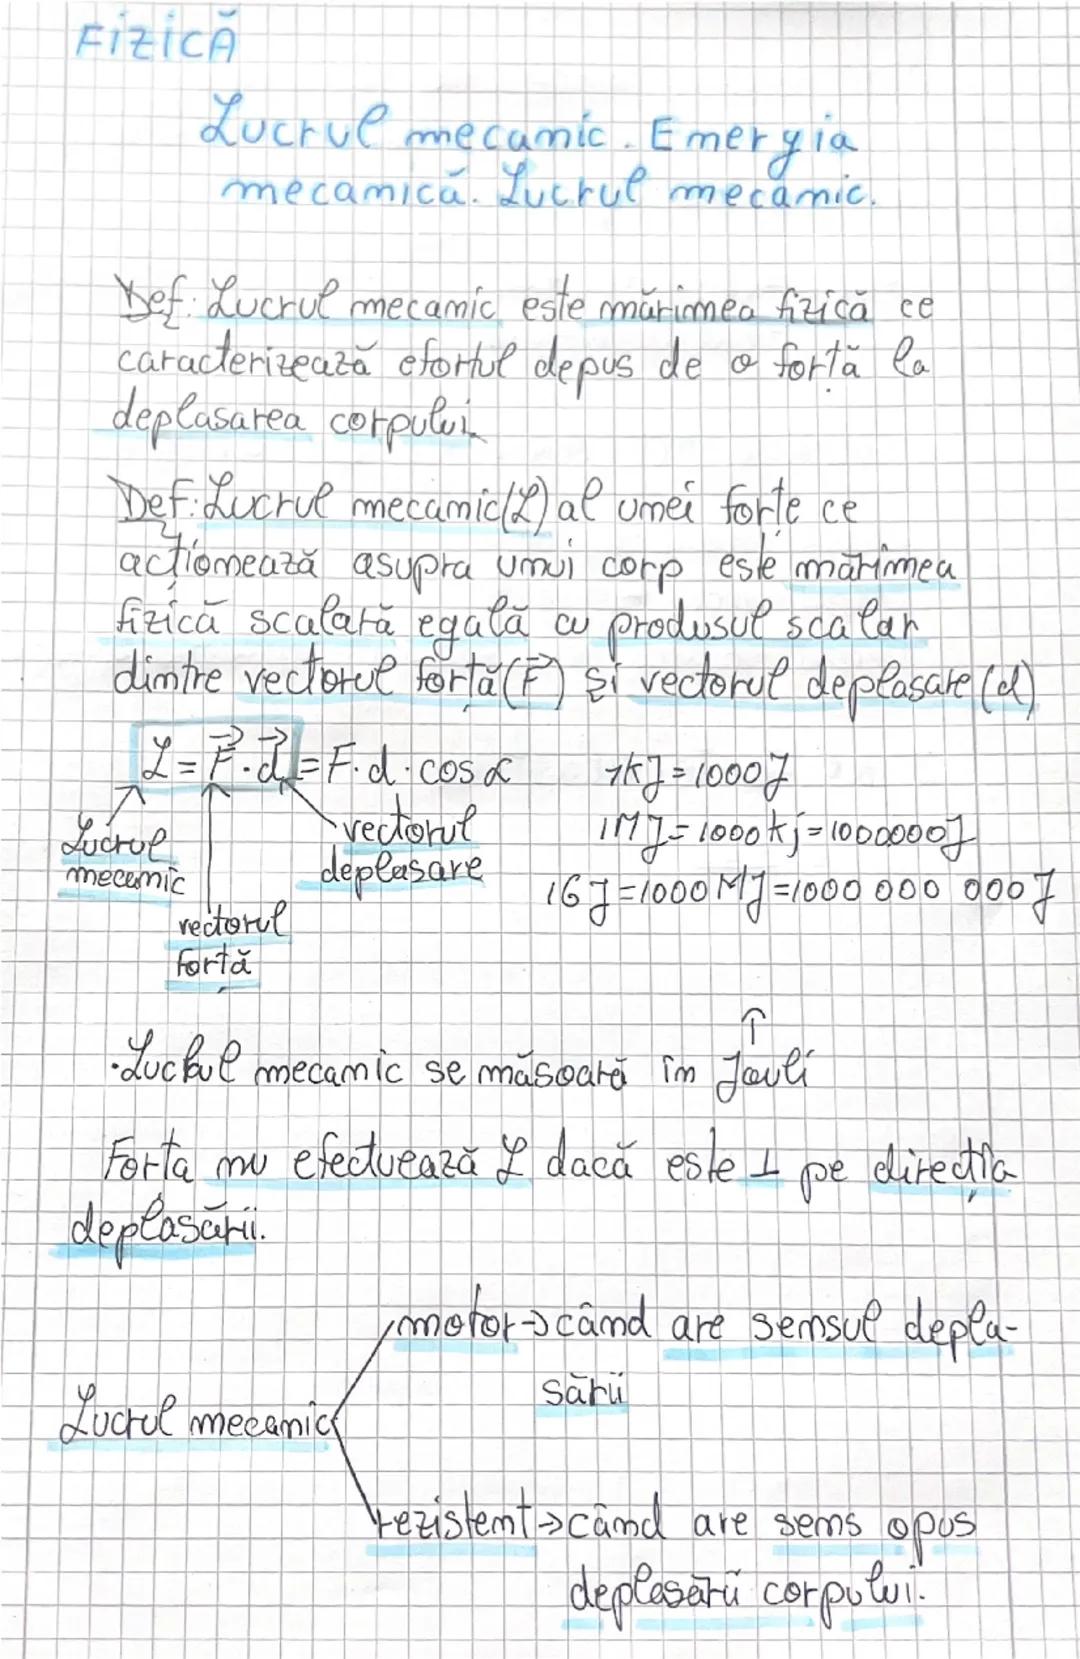 FIZICĂ
Lucrul mecanic. Energia
mecanică. Lucrul mecanic.
Def: Lucrul mecanic este mărimea fizică ce
caracterizează efortul depus de o forță la
deplasarea corpului.
Def: Lucrul mecanic (L) al unei forțe ce
acționează asupra unui corp este mărimea
fizică scalară egală cu produsul scalar
dintre vectorul forță (F⃗) și vectorul deplasare (d)
L = F⃗ · d⃗ = F · d · cos α
1kJ = 1000J
1MJ = 1000kj = 1000000J
1GJ = 1000MJ = 1000 000 000J
Lucrul
mecanic
vectorul
deplasare
vectorul
forță
↑
· Lucrul mecanic se măsoară în Jouli
Forța nu efectuează L dacă este ⊥ pe direcția
deplasării.
motor → când are sensul depla-
sării
Lucrul mecanic
rezistent → când are sens opus
deplasării corpului.